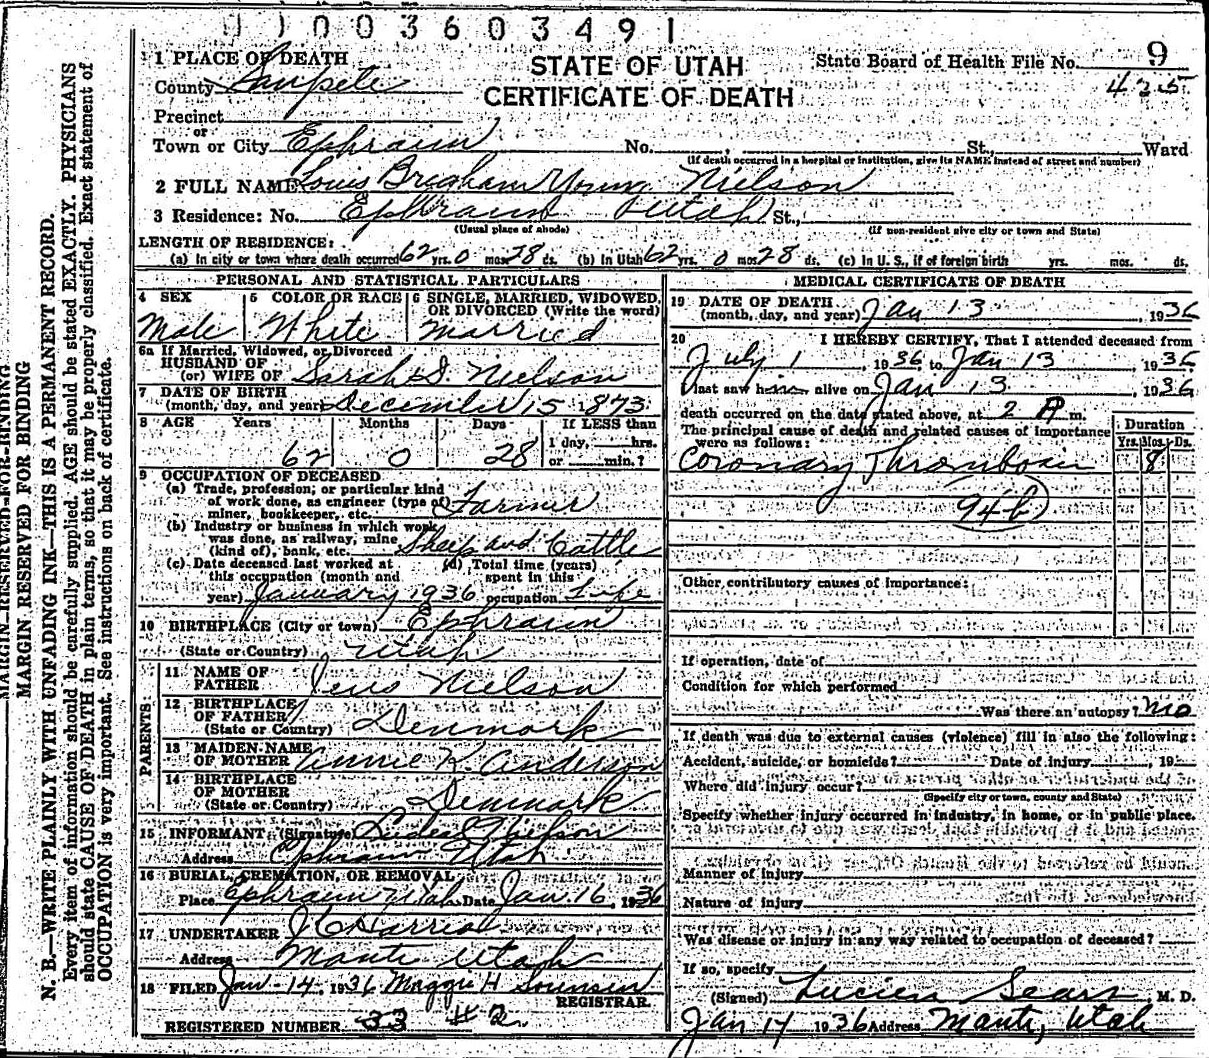 003603491
1 PLACE OF DEATH
County Sanpete
Precinct
or
Town or City Ephraim No. , St., Ward
(If death occurred in a hospital or institution, give its NAME instead of street and number)
STATE OF UTAH
CERTIFICATE OF DEATH
State Board of Health File No. 9
425
2 FULL NAME Louis Brigham Young Nielson
3 Residence: No. Ephraim Utah St.,
(Usual place of abode) (If non-resident give city or town and State)
LENGTH OF RESIDENCE:
(a) In city or town where death occurred 62 yrs. 0 mos. 28 ds. (b) In Utah 62 yrs. 0 mos. 28 ds. (c) In U. S., if of foreign birth yrs. mos. ds.
PERSONAL AND STATISTICAL PARTICULARS
4 SEX
Male
5 COLOR OR RACE
White
6 SINGLE, MARRIED, WIDOWED,
OR DIVORCED (Write the word)
married
6a If Married, Widowed, or Divorced
HUSBAND OF
(or) WIFE OF Sarah D. Nielson
7 DATE OF BIRTH
(month, day, and year) December 15 1873
8 AGE Years Months Days If LESS than
1 day, hrs.
62 0 28 or min.?
9 OCCUPATION OF DECEASED
(a) Trade, profession, or particular kind
of work done, as engineer (type of)
miner, bookkeeper, etc. Farmer
(b) Industry or business in which work
was done, as railway, mine
(kind of), bank, etc. Sheep and Cattle
(c) Date deceased last worked at
this occupation (month and
year) January 1936
(d) Total time (years)
spent in this
occupation Life
10 BIRTHPLACE (City or town) Ephraim
(State or Country) Utah
PARENTS
11 NAME OF
FATHER Jens Nielson
12 BIRTHPLACE
OF FATHER
(State or Country) Denmark
13 MAIDEN NAME
OF MOTHER Annie K. Anderson
14 BIRTHPLACE
OF MOTHER
(State or Country) Denmark
15 INFORMANT (Signature) Nielson
Address Ephraim Utah
16 BURIAL, CREMATION, OR REMOVAL
Place Ephraim Utah Date Jan. 16, 1936
17 UNDERTAKER
Address Manti Utah
18 FILED Jan-14, 1936 Maggie H Sorensen
REGISTRAR.
REGISTERED NUMBER 33 #2
MEDICAL CERTIFICATE OF DEATH
19 DATE OF DEATH
(month, day, and year) Jan 13, 1936
20 I HEREBY CERTIFY, That I attended deceased from
July 1, 1936 to Jan 13 1936
I last saw him alive on Jan 13, 1936
death occurred on the date stated above, at 2 P m.
The principal cause of death and related causes of importance
were as follows:
Duration
Yrs. Mos. Ds.
Coronary Thrombosis 8
94b
Other contributory causes of importance:
If operation, date of
Condition for which performed
Was there an autopsy? No
If death was due to external causes (violence) fill in also the following:
Accident, suicide, or homicide? Date of injury , 19
Where did injury occur?
(Specify city or town, county and State)
Specify whether injury occurred in industry, in home, or in public place.
Manner of injury
Nature of injury
Was disease or injury in any way related to occupation of deceased?
If so, specify
(Signed) Lucien Sears, M. D.
Jan 14 1936 Address Manti, Utah
MARGIN RESERVED FOR BINDING
MARGIN RESERVED FOR BINDING
N. B.—WRITE PLAINLY WITH UNFADING INK—THIS IS A PERMANENT RECORD.
Every item of information should be carefully supplied. AGE should be stated EXACTLY. PHYSICIANS
should state CAUSE OF DEATH in plain terms, so that it may be properly classified. Exact statement of
OCCUPATION is very important. See instructions on back of certificate.